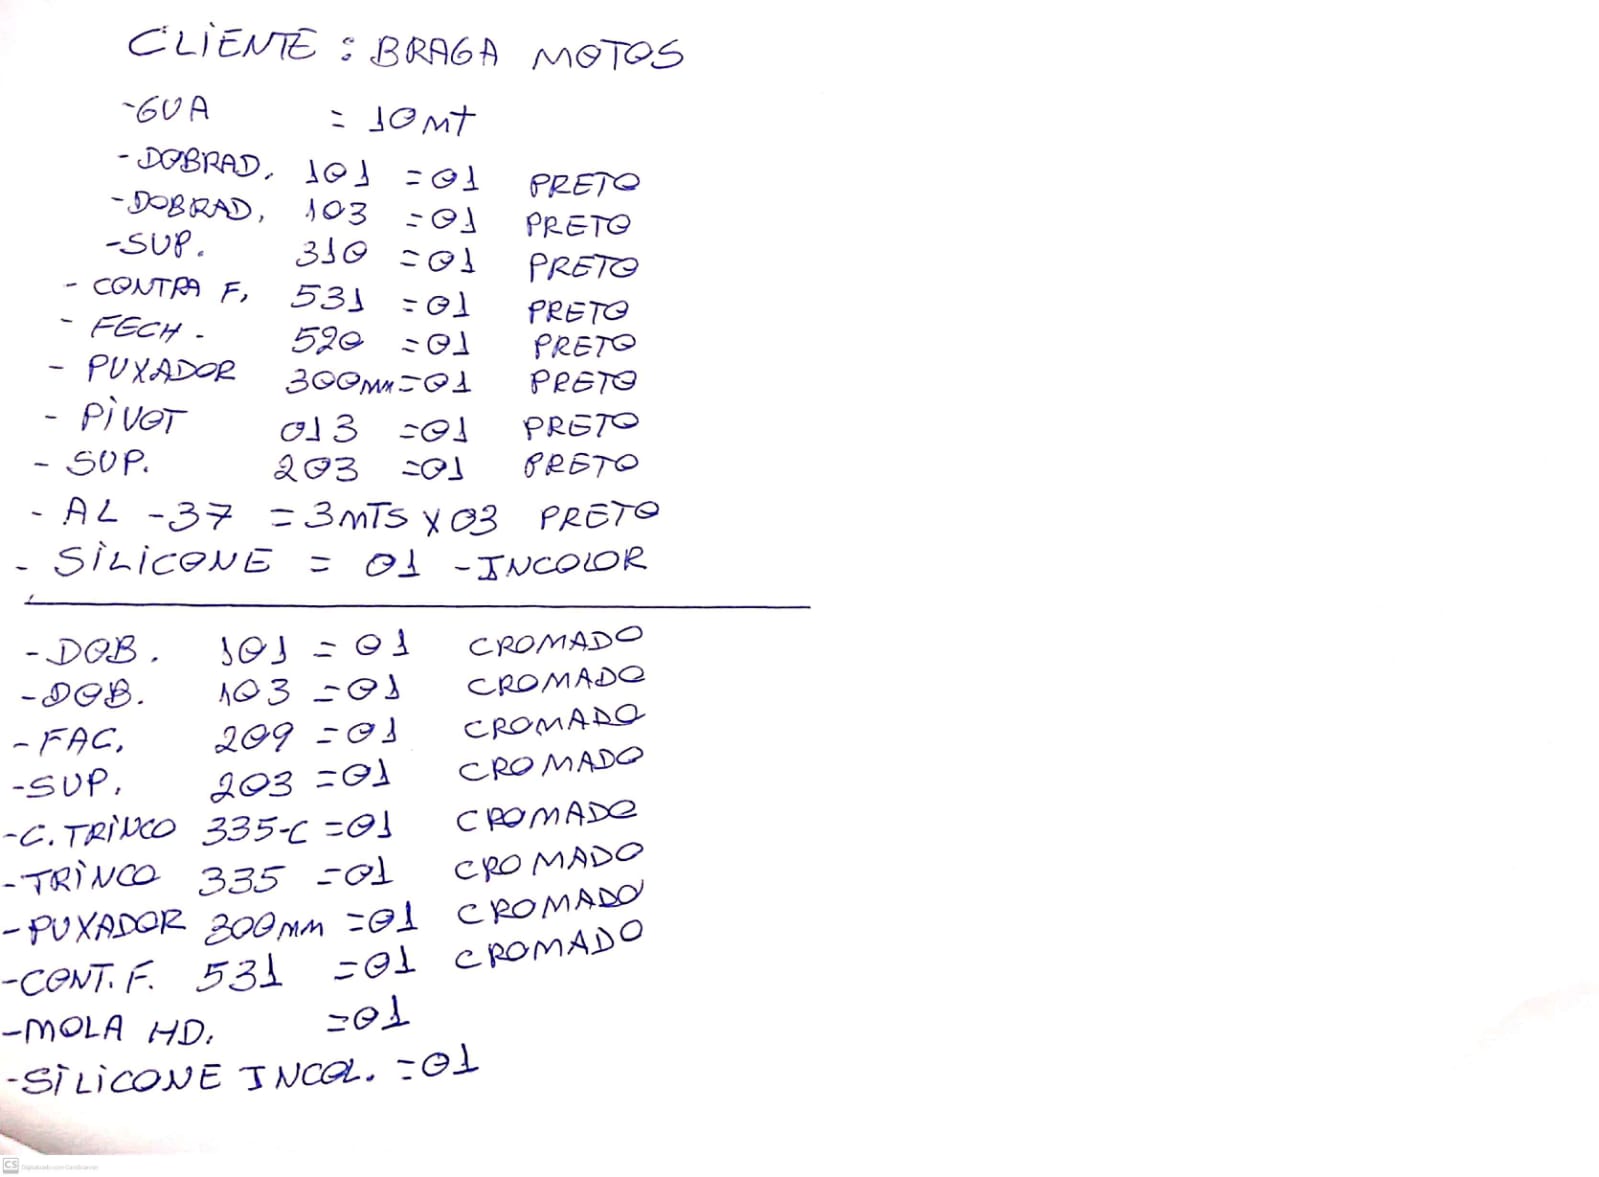 CLIENTE : BRAGA MOTOS
-GUA = 10 MT
- DOBRAD. 101 = 01 PRETO
- DOBRAD. 103 = 01 PRETO
-SUP. 310 = 01 PRETO
- CONTRA F. 531 = 01 PRETO
- FECH. 520 = 01 PRETO
- PUXADOR 300MM = 01 PRETO
- PIVOT 013 = 01 PRETO
- SUP. 203 = 01 PRETO
- AL -37 = 3MTS X 03 PRETO
- SILICONE = 01 - INCOLOR
-DOB. 101 = 01 CROMADO
-DOB. 103 = 01 CROMADO
-FAC. 209 = 01 CROMADO
-SUP. 203 = 01 CROMADO
-C. TRINCO 335-C = 01 CROMADO
-TRINCO 335 = 01 CROMADO
-PUXADOR 300MM = 01 CROMADO
-CONT. F. 531 = 01 CROMADO
-MOLA HD. = 01
-SILICONE INCOL. = 01
CS Digitalizado com CamScanner